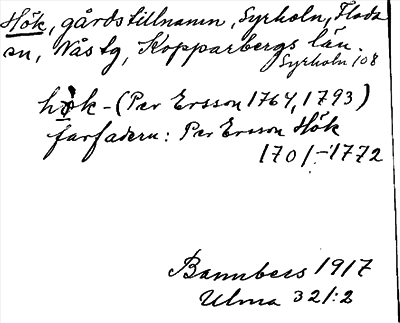 Hök, gårdstillnamn, Syrholn, Floda
sn, Nåstg, Kopparbergs län.
Syrholn 108
hök - (Per Ersson 1764, 1793)
farfadern: Per Ersson Hök
1701-1772
Bannbers 1917
Ulma 321:2